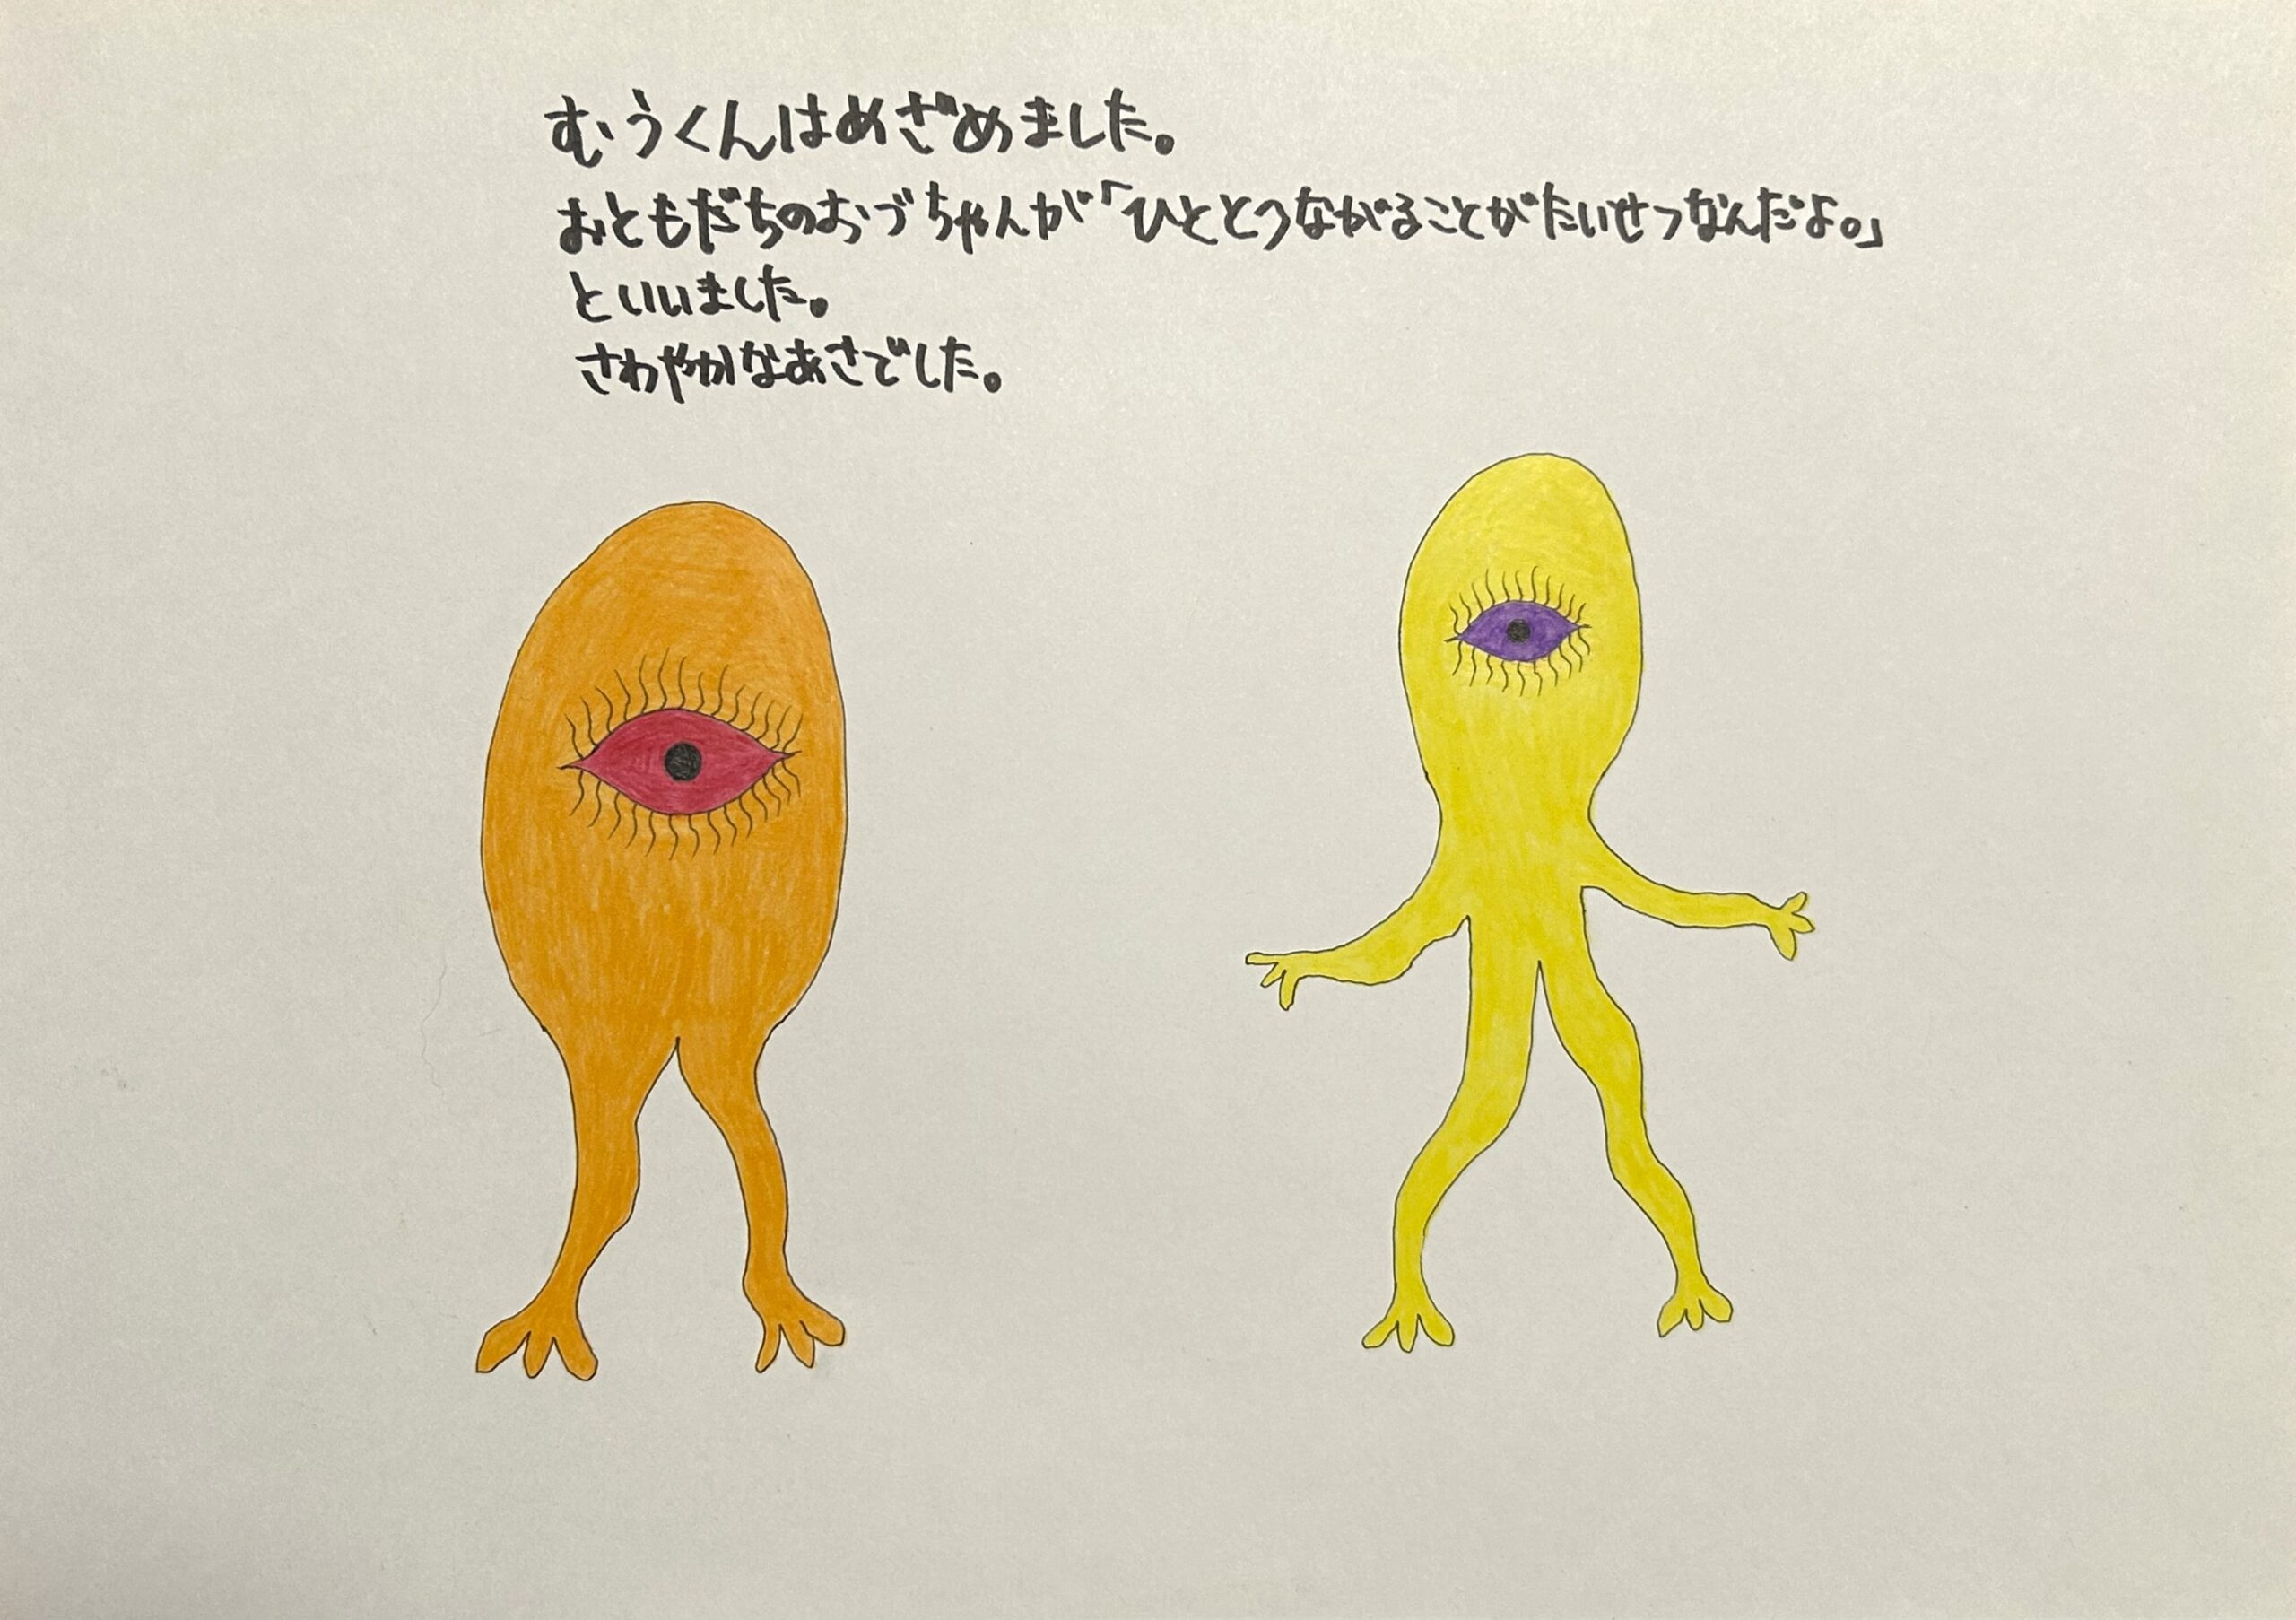 むうくんはめざめました。
おともだちのおづちゃんが「ひととつながることがたいせつなんだよ。」
といいました。
さわやかなあさでした。